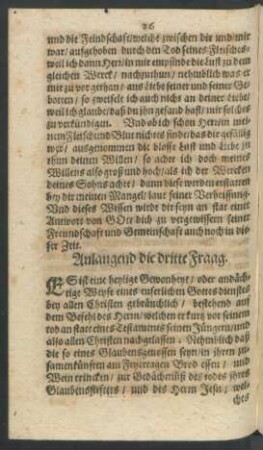 26
und die Feindschafft/welche zwischen dir und mir
war/ auffgehoben durch den Tod seines Fleisches/
weil ich dann Herr/in mir empfinde die Lust zu dem
gleichen Werck/ nachzuthun/ nehmblich was er
mir zu vor gethan/ aus Liebe seiner und seiner Ge-
botten/ so zweifele ich auch nichs an deiner Liebe/
weil ich glaube/ daß du ihn gesand hast/ mir solches
zu verkündigen. Und ob ich schon Herr in mei-
nem Fleisch und Blut nichtes finde/ das dir gefällig
wer/ ausgenommen die blosse Lust und Liebe zu
thun deinen Willen/ so achte ich doch meines
Willens also groß und hoch/ als ich der Wercken
deines Sohns achte/ dann diese werden erstatten
bey dir meinen Mangel/ laut seiner Verheissung.
Und dieses Wissen wirds dir seyn an statt einer
Antwort von GOtt dich zu vergewissern seiner
Freundschafft und Gemeinschafft auch noch in die-
ser Zeit.
Anlangend die dritte Fraag.
ES ist eine heylige Gewonheyt/ oder andäch-
tige Weyse eines eusserlichen Gottesdienstes
bey allen Christen gebräuchlich/ bestehend auff
dem Befehl des Herrn/ welchen er kurtz vor seinem
tod an statt eines Testamentes seinen Jüngern/ und
also allen Christen nachgelassen. Nehmblich daß
die so eines Glaubensgenossen seyn/ in ihren zu-
samenkünfften am Feyertagen Brod essen/ und
Wein trincken/ zur Gedächtniß des todes ihres
Glaubensstiffters/ und des Herrn Jesu/ wel-
ches